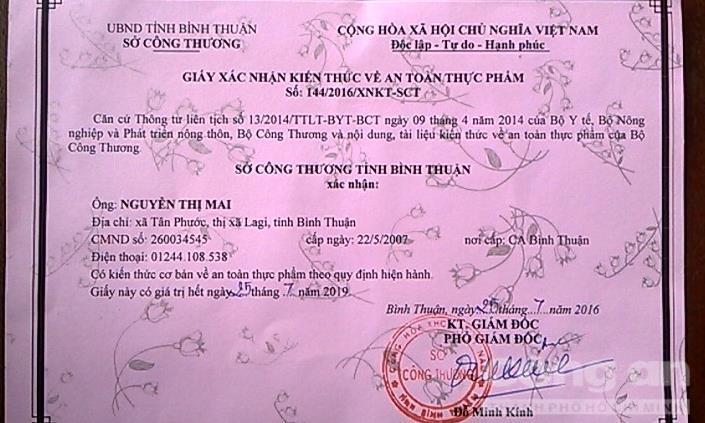 UBND TỈNH BÌNH THUẬN
SỞ CÔNG THƯƠNG
CỘNG HÒA XÃ HỘI CHỦ NGHĨA VIỆT NAM
Độc lập - Tự do - Hạnh phúc
GIẤY XÁC NHẬN KIẾN THỨC VỀ AN TOÀN THỰC PHẨM
Số: 144/2016/XNKT-SCT
Căn cứ Thông tư liên tịch số 13/2014/TTLT-BYT-BCT ngày 09 tháng 4 năm 2014 của Bộ Y tế, Bộ Nông
nghiệp và Phát triển nông thôn, Bộ Công Thương và nội dung, tài liệu kiến thức về an toàn thực phẩm của Bộ
Công Thương.
SỞ CÔNG THƯƠNG TỈNH BÌNH THUẬN
xác nhận:
Ông: NGUYỄN THỊ MAI
Địa chỉ: xã Tân Phước, thị xã Lagi, tỉnh Bình Thuận
CMND số: 260034545 cấp ngày: 22/5/2007 nơi cấp: CA Bình Thuận
Điện thoại: 01244.108.538
Có kiến thức cơ bản về an toàn thực phẩm theo quy định hiện hành.
Giấy này có giá trị hết ngày 25 tháng 7 năm 2019
Bình Thuận, ngày 25 tháng 7 năm 2016
KT. GIÁM ĐỐC
PHÓ GIÁM ĐỐC
SỞ
CÔNG THƯƠNG
Đỗ Minh Kính